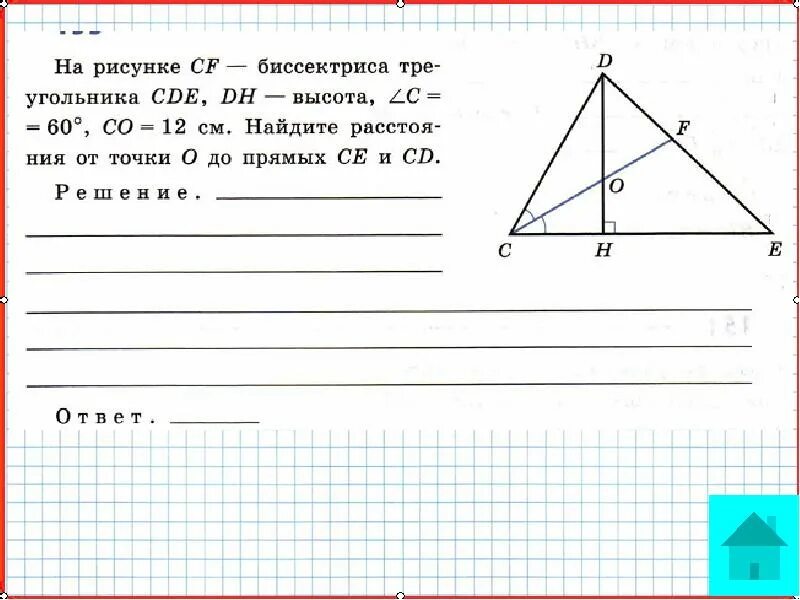 На рисунке CF — биссектриса тре-
угольника CDE, DH — высота, ∠C =
= 60°, CO = 12 см. Найдите расстоя-
ния от точки O до прямых CE и CD.
Решение.
Ответ.
D
F
O
C
H
E